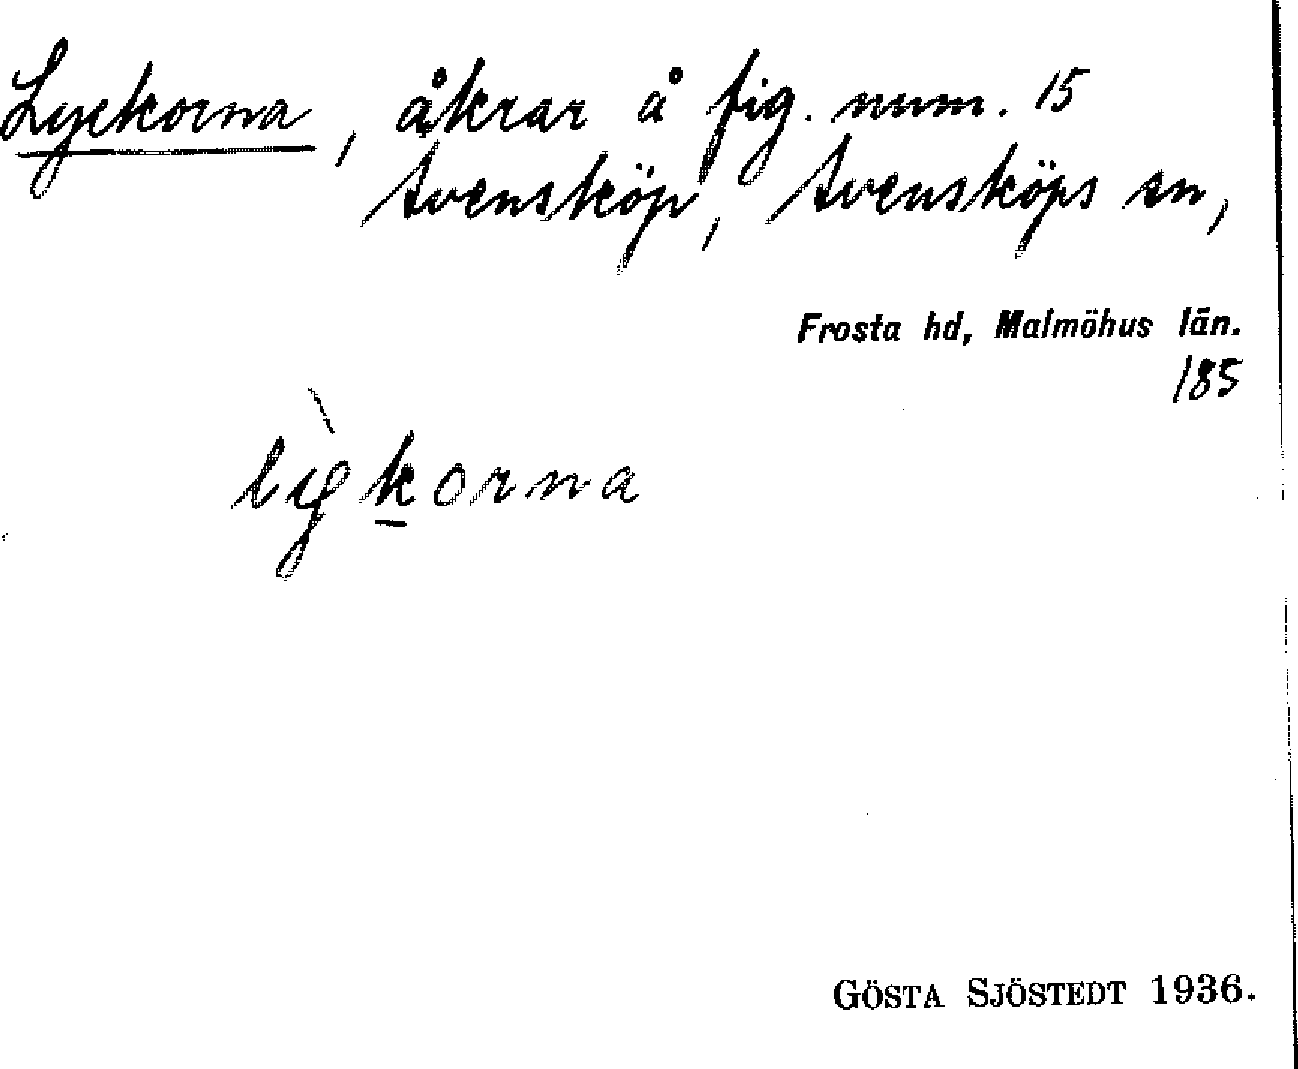 Lyckorna, åkrar å fig. num. 15
Svensköp, Svensköps sn,
Frosta hd, Malmöhus län.
185
lỳkorna
GÖSTA SJÖSTEDT 1936.